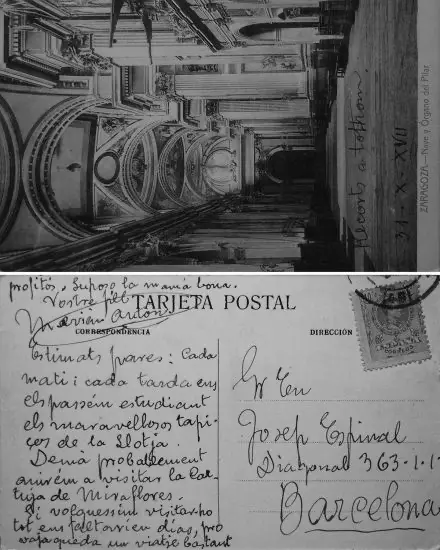 ZARAGOZA.—Nave y Órgano del Pilar
Record a tothom
31 · X · XVII
TARJETA POSTAL
CORRESPONDENCIA
DIRECCIÓN
Estimats pares: Cada
mati i cada tarda ens
els passém estudiant
els maravellosos tapi-
ços de la Llotja.
Demà probablement
anirém a visitar la Car-
tuja de Miraflores.
Si volguessim visitarho
tot ens faltarien dias, pro
vaja queda un viatje bastant
profitós. Suposo la mamá bona.
Vostre fill
Marian Anton.
Sr En
Josep Espinal
Diagonal 363-1-1
Barcelona